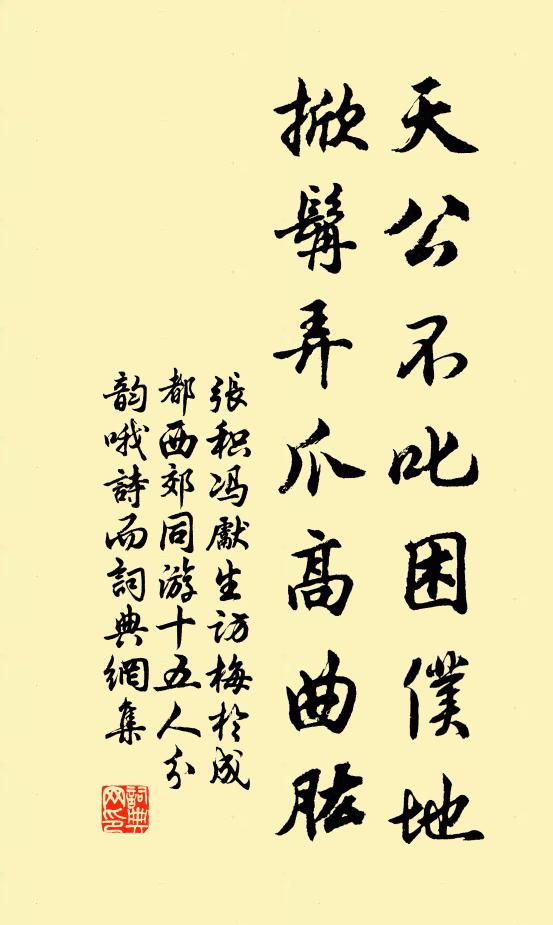 天公不叱困僕地
掀髯弄爪高曲肱
張积冯獻生訪梅於成
都西郊同游十五人分
韵哦詩而詞典網集
詞典
网印